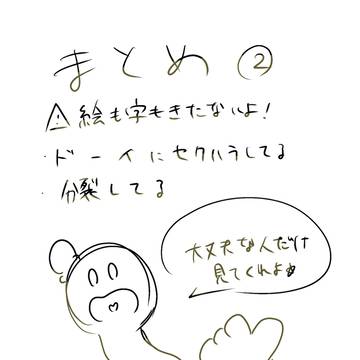 まとめ ②
⚠絵も字もきたないよ!
・ドーイにセクハラしてる
・分裂してる
大丈夫な人だけ
見てくれよ